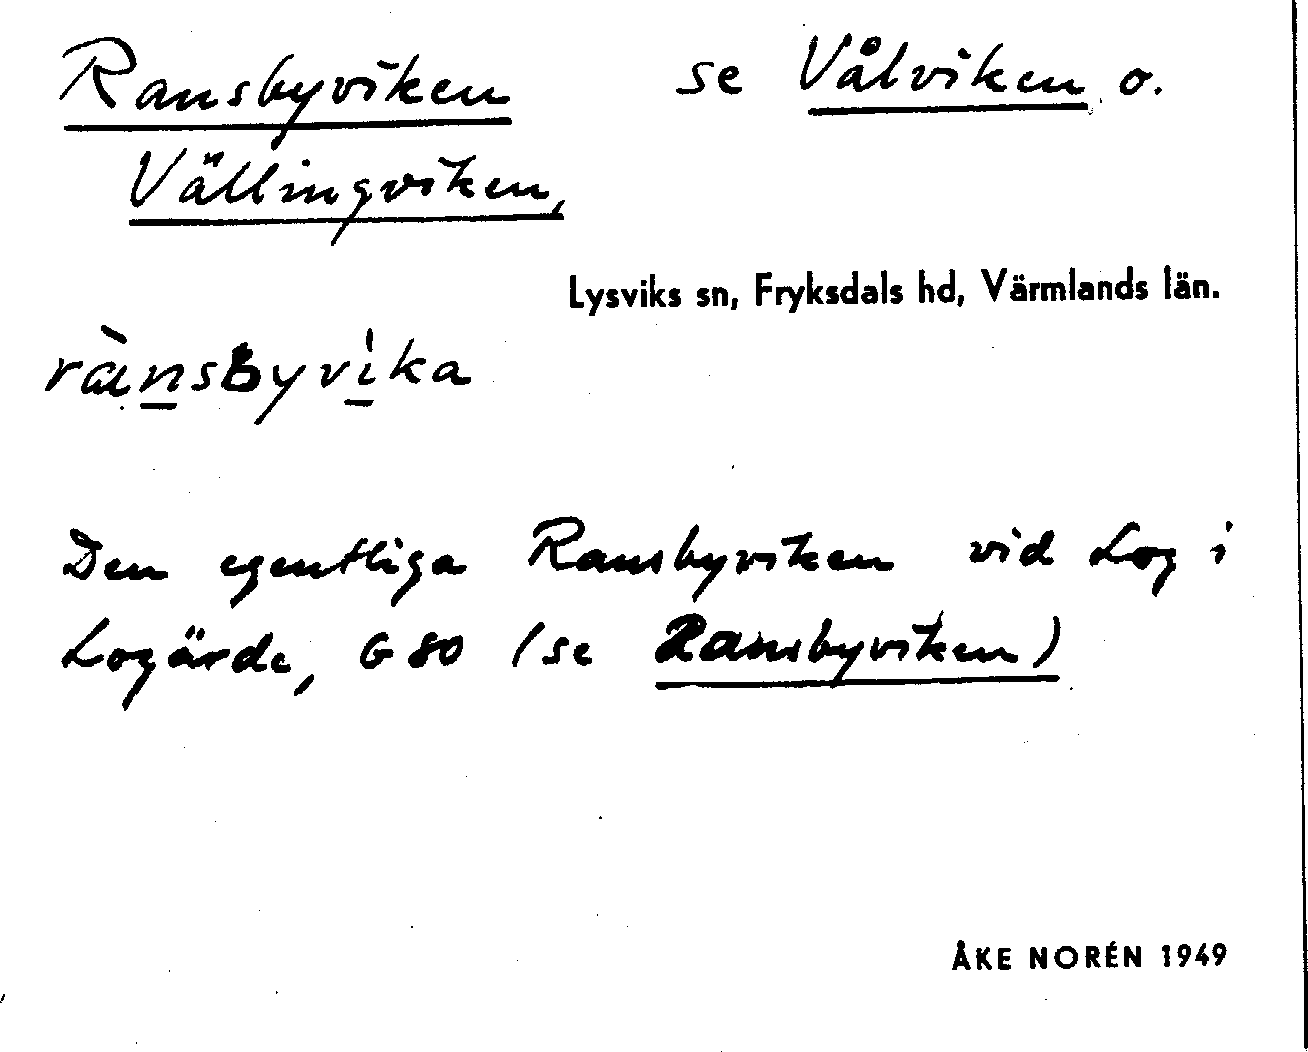 Ransbyviken se Vålviken o.
Vällingviken,
Lysviks sn, Fryksdals hd, Värmlands län.
rànsbyvika
Den egentliga Ransbyviken vid Log i
Logärde, G 80 (se Ransbyviken)
ÅKE NORÉN 1949